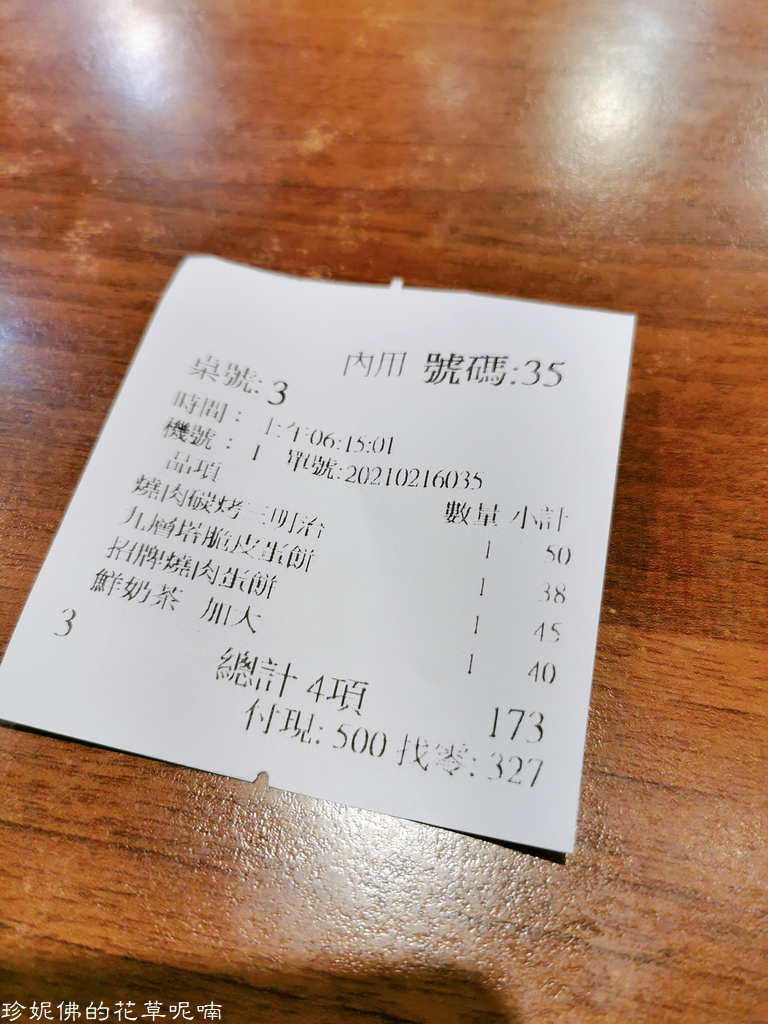 內用 號碼:35
桌號: 3
時間: 上午06:15:01
機號: 1 單號:20210216035
品項 數量 小計
燒肉碳烤三明治 1 50
九層塔脆皮蛋餅 1 38
招牌燒肉蛋餅 1 45
鮮奶茶 加大 1 40
3
總計 4項 173
付現: 500 找零: 327
珍妮佛的花草呢喃